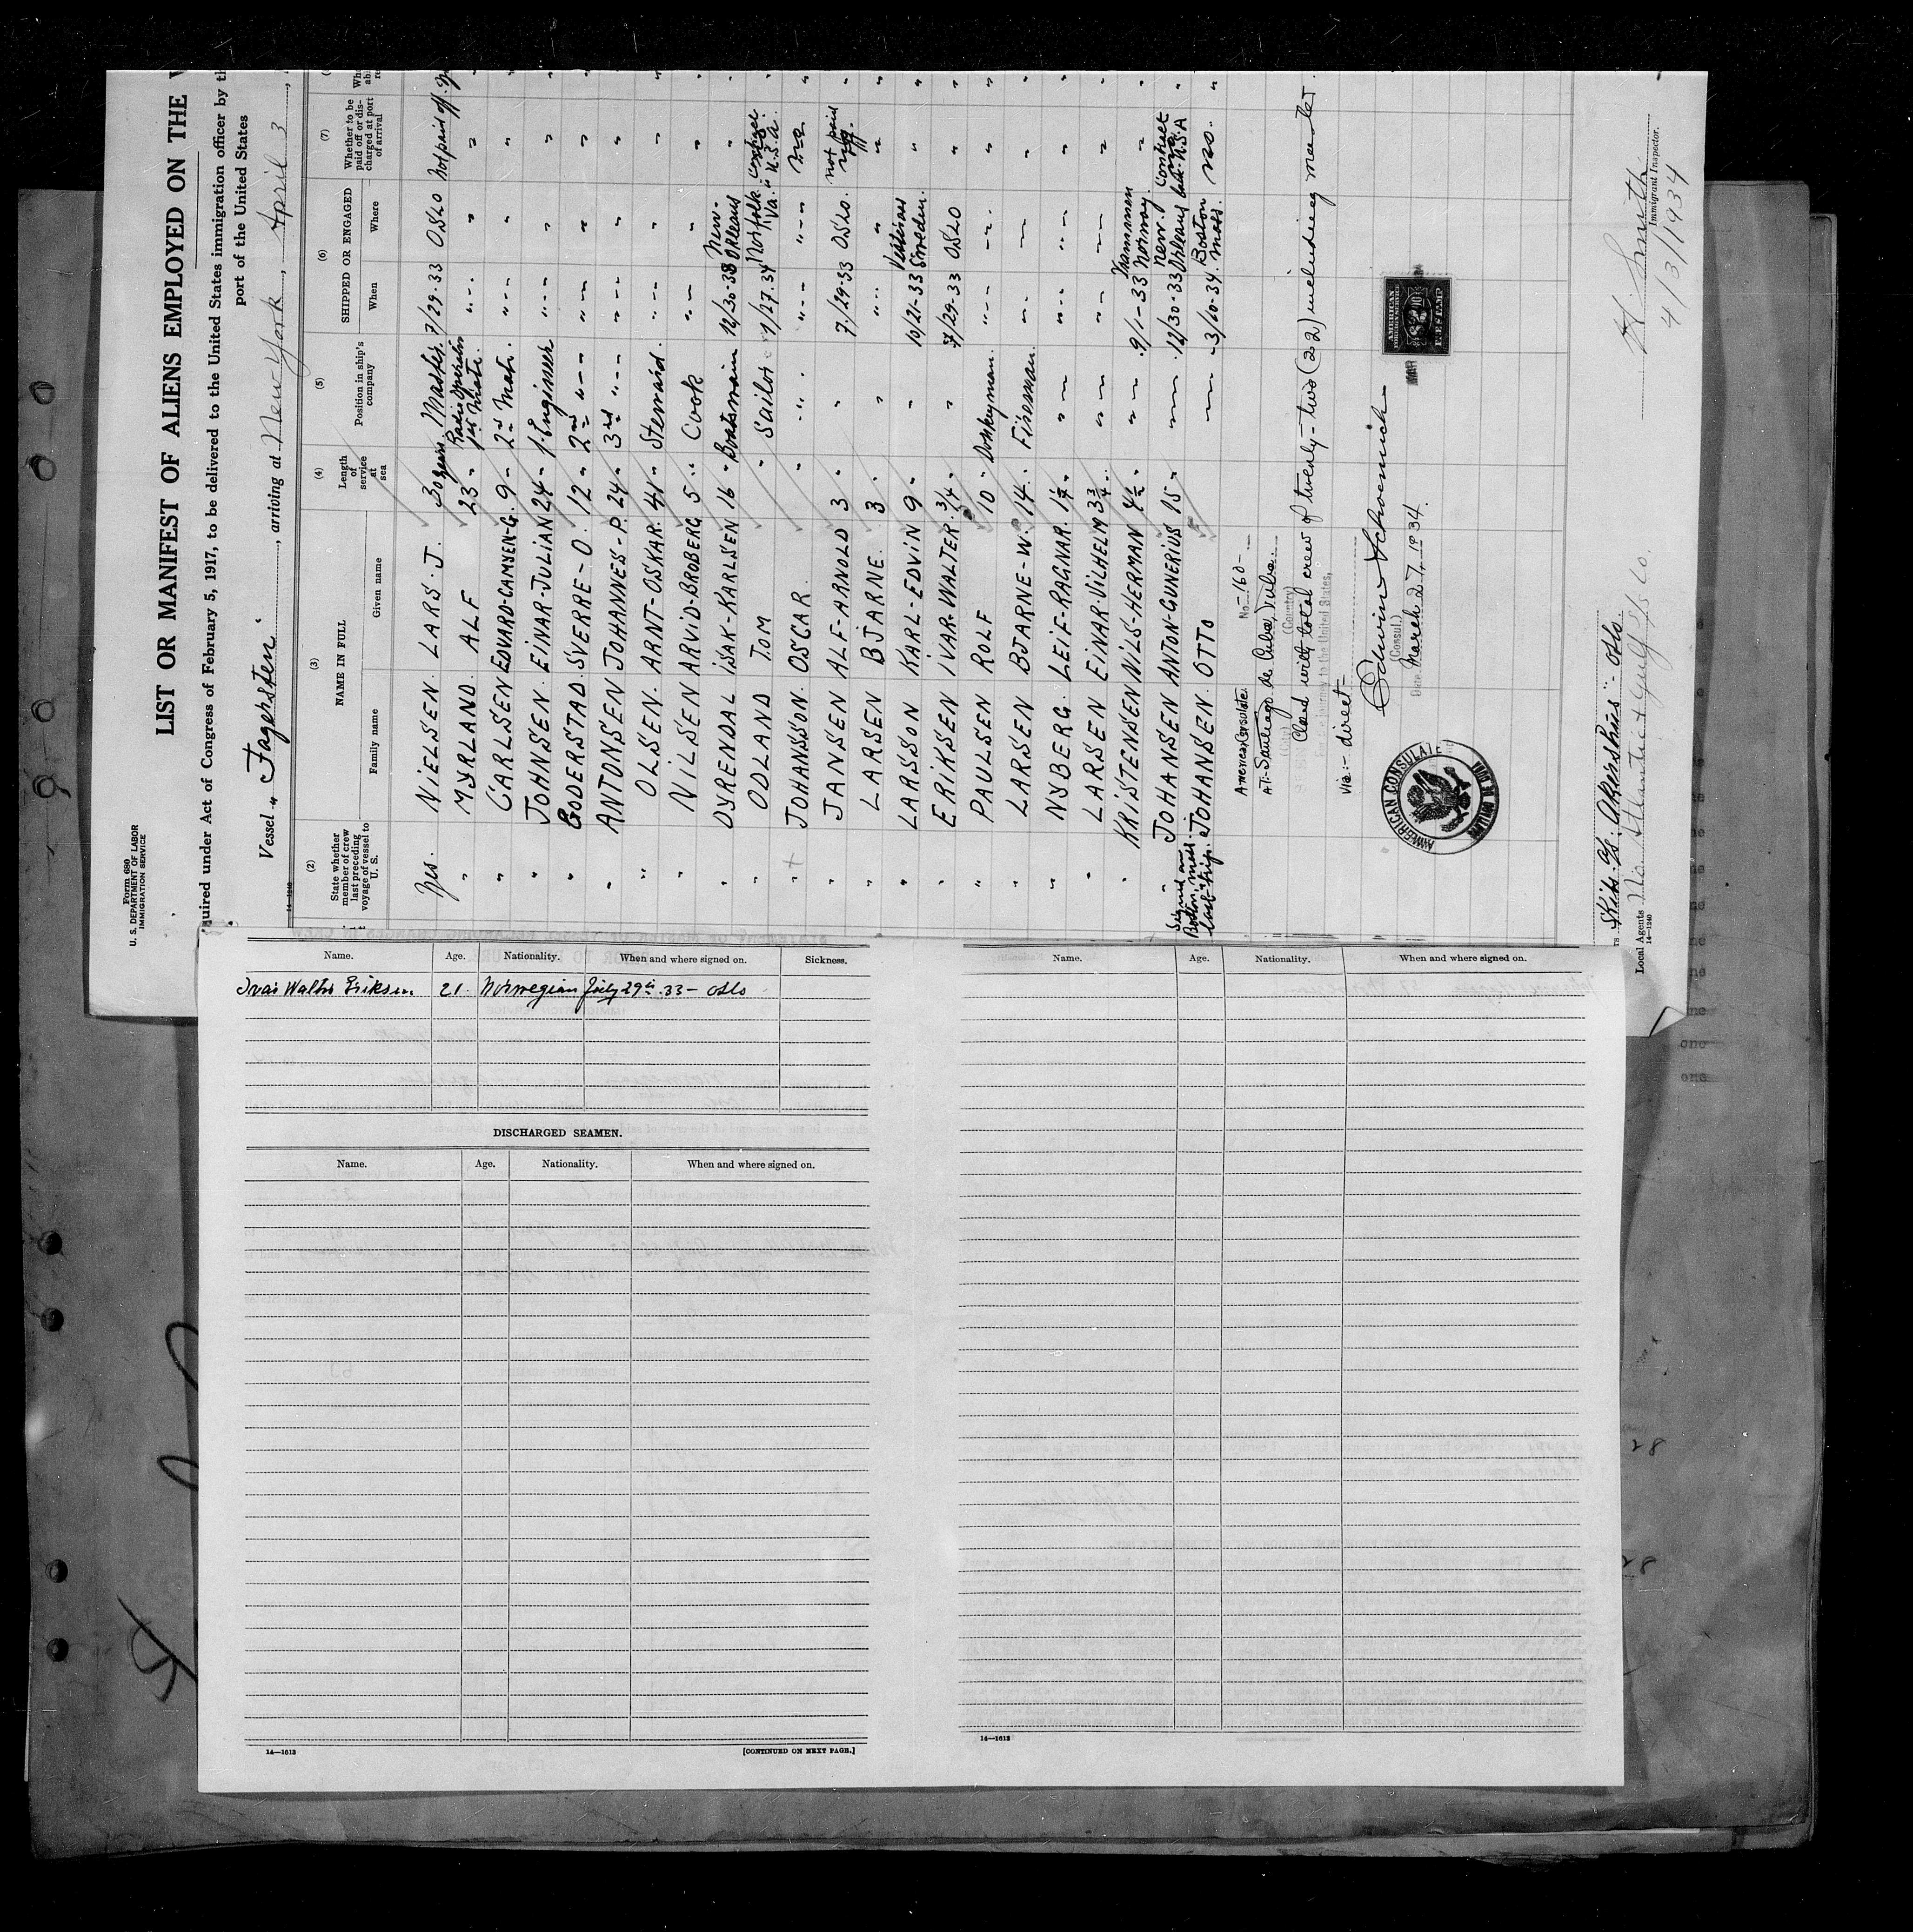 Form 680
U. S. DEPARTMENT OF LABOR
IMMIGRATION SERVICE
LIST OR MANIFEST OF ALIENS EMPLOYED ON THE
quired under Act of Congress of February 5, 1917, to be delivered to the United States immigration officer by th
port of the United States
Vessel "Fagersten", arriving at New York, April 3,
14—1240
(2) (3) (4) (5) (6) (7)
State whether member of crew last preceding voyage of vessel to U. S.
NAME IN FULL
Family name Given name
Length of service at sea
Position in ship's company
SHIPPED OR ENGAGED
When Where
Whether to be paid off or discharged at port of arrival
Yes. NIELSEN. LARS. J. 30 years. Master. 7/29-33 OSLO Not paid off.
" MYRLAND. ALF 23 " Radio Operator 1st Mate. " -- " "
" CARLSEN EDVARD-CAMYEN-G. 9 - 2nd Mate. " -- " "
" JOHNSEN. EINAR-JULIAN 24 - 1. Engineer " -- " "
" GODERSTAD. SVERRE-O. 12 " 2nd " -- " -- " "
" ANTONSEN JOHANNES-P. 24 " 3rd " -- " -- " "
" OLSEN. ARNT-OSKAR. 41 " Steward. " -- " "
" NILSEN ARVID-BROBERG 5 " Cook " -- " "
" DYRENDAL ISAK-KARLSEN 16 " Boatsmain 12/30-33 New-Orleans "
" ODLAND TOM " Sailor 1/27.34 Norfolk Va. U.S.A.
" JOHANSSON. OSCAR. " " " -- " --
" JANSEN ALF-ARNOLD 3 " " 7/29-33 OSLO. not paid off.
" LARSEN BJARNE. 3 " " " -- " "
" LARSSON KARL-EDVIN 9 " " 10/21-33 Sweden. "
" ERIKSEN IVAR-WALTER. 3/4 " " 7/29-33 OSLO "
" PAULSEN ROLF 10 " Donkeyman. " -- " -- "
" LARSEN BJARNE-W. 14 " Fireman. " -- " -- "
" NYBERG. LEIF-RAGNAR. " -- " -- " -- "
" LARSEN EINAR-VILHELM 3 3/4 " -- " -- " -- "
" KRISTENSEN NILS-HERMAN 4 1/2 " -- 9/1-33 Norway. "
" JOHANSEN ANTON-GUNERIUS 15 " -- 12/30-33 New. Orleans Contract U.S.A
Signed on Boston, mass. last trip. JOHANSEN. OTTO -- 3/10-34. Boston mass. no.
American Consulate. No-160-
AT:- Santiago de Cuba, Cuba.
(City) (Country)
Closed with total crew of twenty-two (22) including master.
For the journey to the United States,
Via:- direct-
Edwin Schoenrich
(Consul.)
Date March 27, 1934.
AMERICAN CONSULATE
SANTIAGO DE CUBA
AMERICAN
FOREIGN SERVICE
FEE STAMP
rs Skibs A/s. "Akershus" - Oslo.
Local Agents Atlantic & Gulf S/S Co.
14—1240
Immigrant Inspector.
4/3/1934
Name. Age. Nationality. When and where signed on. Sickness.
Ivar Walter Eriksen. 21. Norwegian July 29th. 33 - Oslo
DISCHARGED SEAMEN.
Name. Age. Nationality. When and where signed on.
14—1613
[CONTINUED ON NEXT PAGE.]
Name. Age. Nationality. When and where signed on.
14—1613
28
28